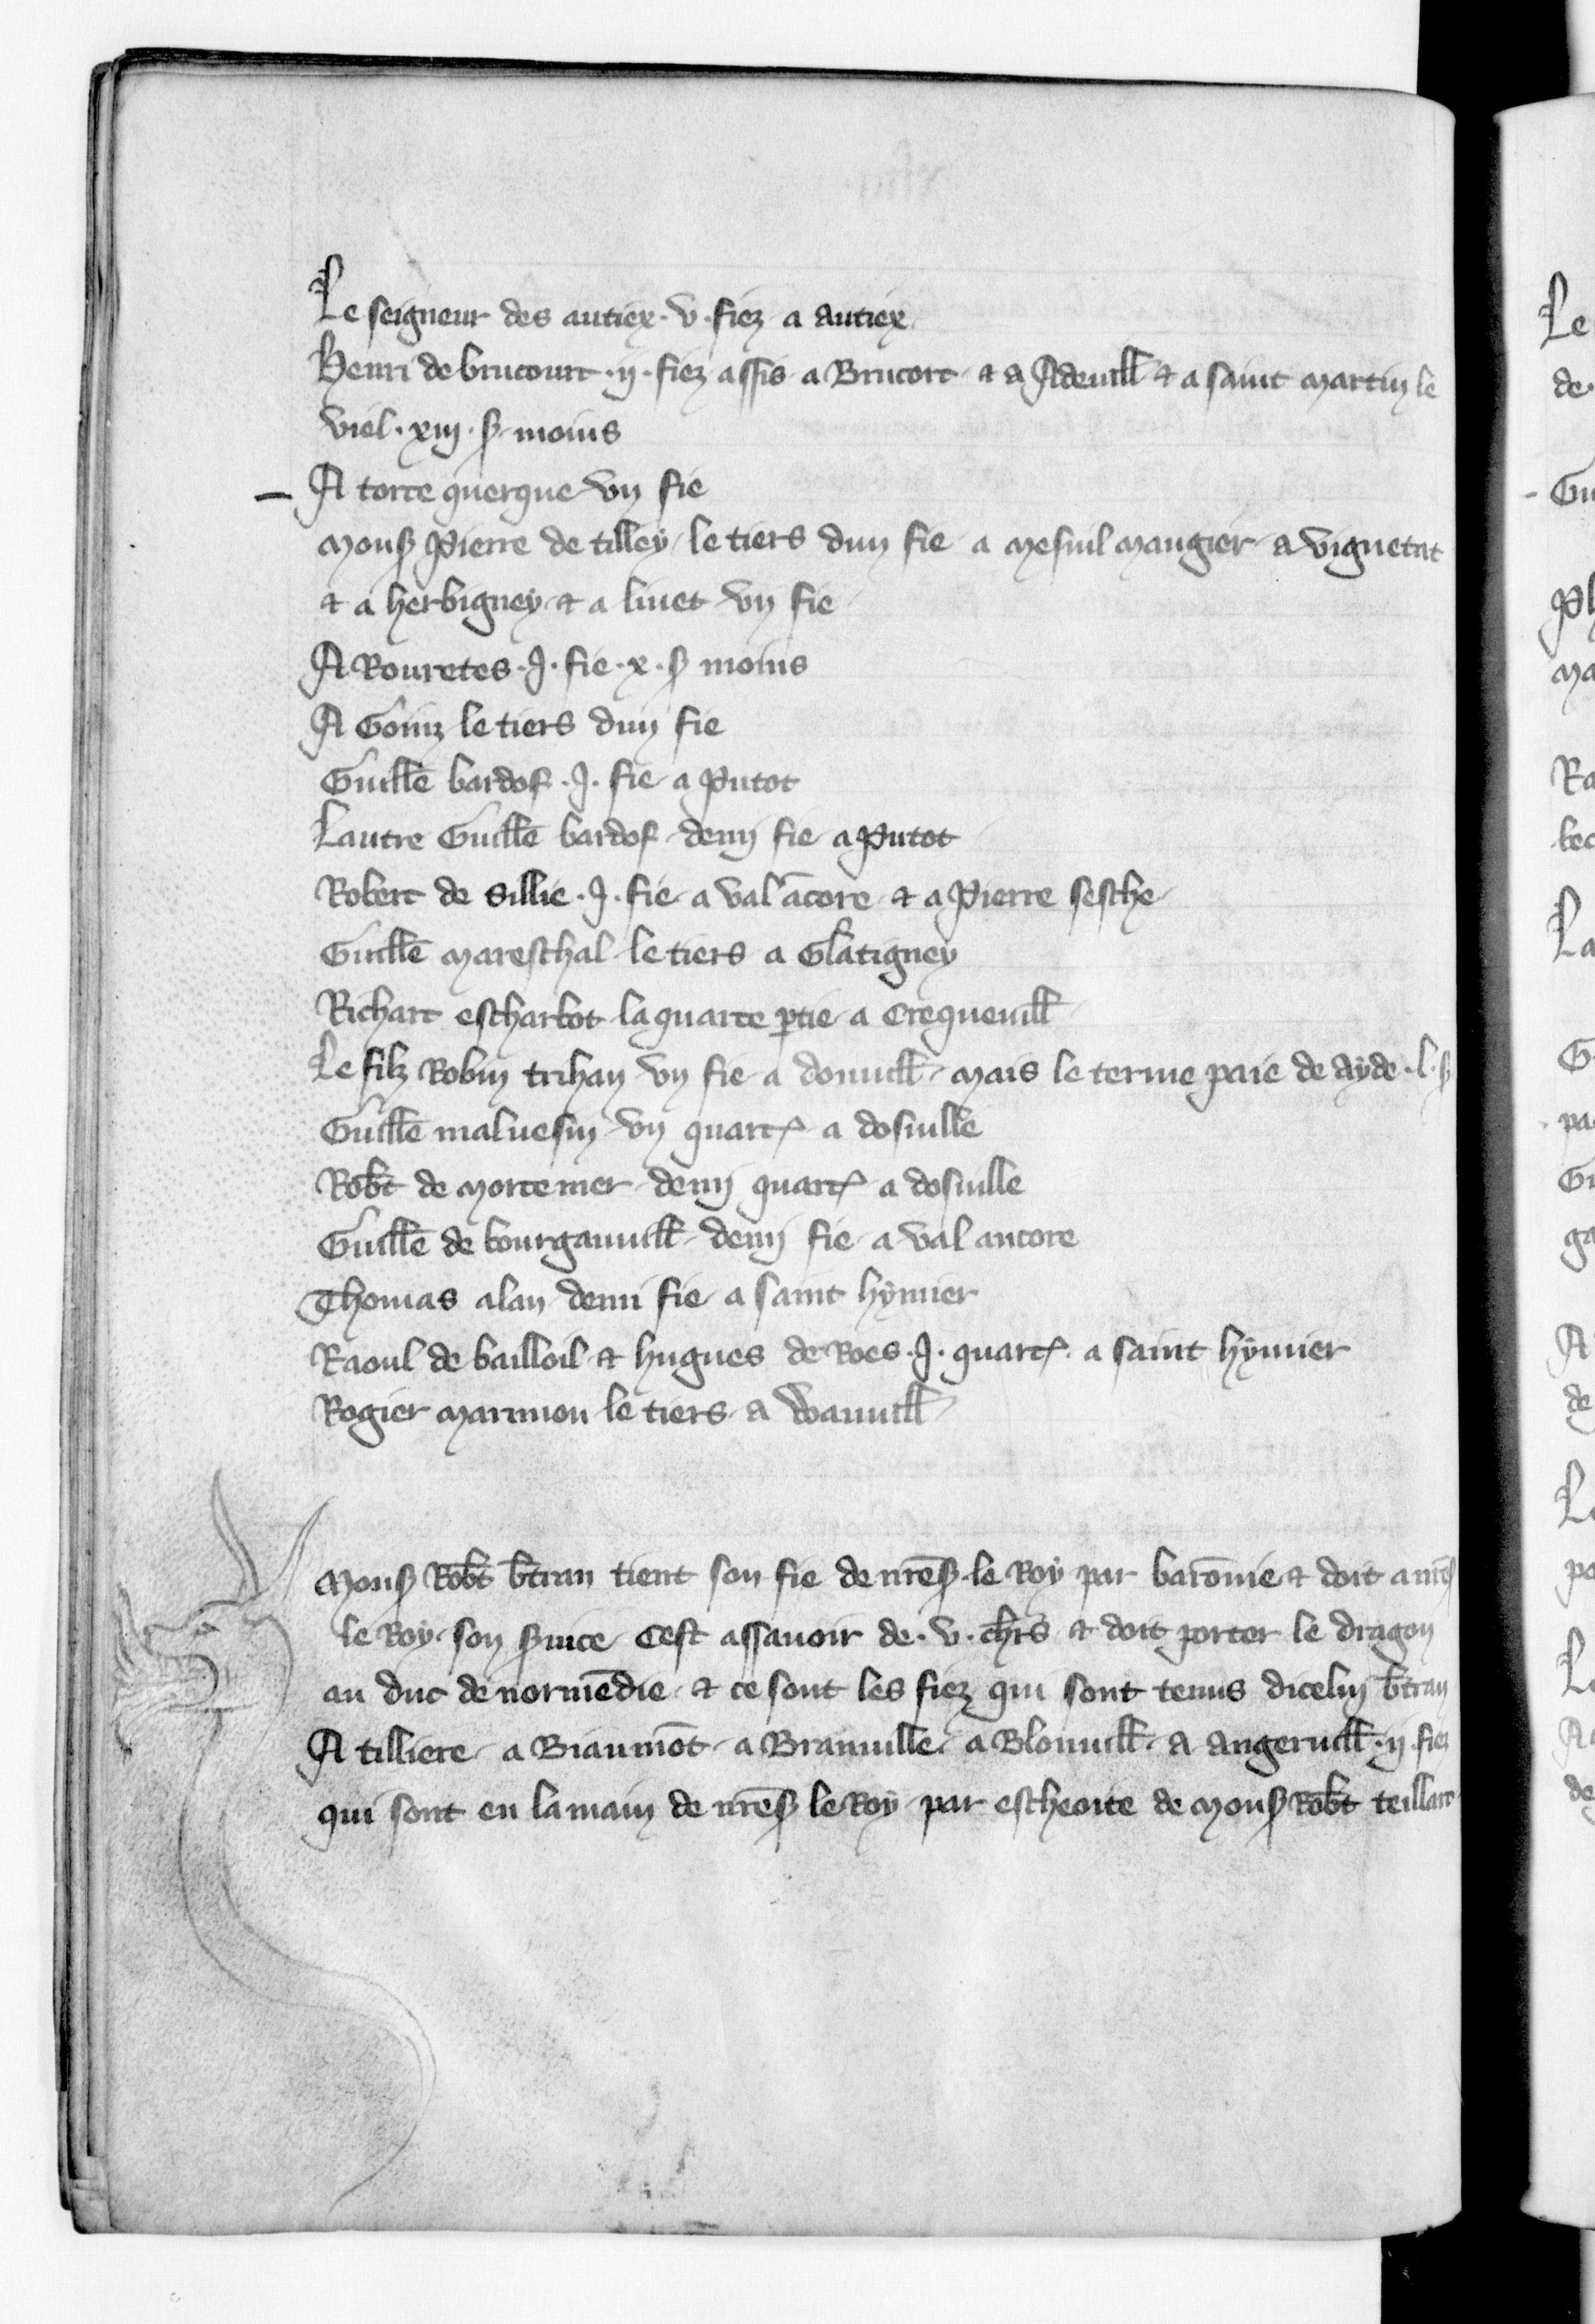 Le seigneur des autiex .v. fiez a autiex
Henri de brucourt .ij. fiez assis a Brucort et a Adeuill̄ et a saint martin le
viel .xiij. s̄ moins
A torte querque vn fie
Mons̄ Pierre de tilley le tiers dun fie a mesnil maugier a vignetat
et a herbigney et a liuet vn fie
A Rouretes .J. fie .x. s̄ moins
A Gouiz le tiers dun fie
Guill̄e bardof .J. fie a Putot
Lautre Guill̄e bardof demj fie a Putot
Robert de sillie .J. fie a val ācore et a Pierre sesche
Guill̄e mareschal le tiers a Glatigney
Richart escharbot la quarte p̄tie a Crequeuill̄
Le filz Robin trihan vn fie a douuill̄ mais le terme paie de ayde .l. s̄
Guill̄e maluesin vn quart̄ a dosuille
Rob̄t de mortemer demj quart̄ a dosuille
Guill̄e de bourgauuill̄ demj fie a val ancore
Thomas alan demi fie a saint hymier
Raoul de bailloil et hugues de Roes .J. quart̄ a saint hymier
Rogier marmion le tiers a Woauuill̄
Mons̄ Rob̄t b̄tran tient son fie de nr̄es̄ le Roy par barōnie et doit a nr̄es̄
le Roy son s̄uice Cest assauoir de .v. ch̄rs et doit porter le dragon
au duc de normēdie et ce sont les fiez qui sont tenus diceluj b̄tran
A tilliere a Biaumōt a Branuille a Blouuill̄ a angeruill̄ .ij. fiez
qui sont en la main de nr̄es̄ le Roy par escheoite de Mons̄ Rob̄t teillart